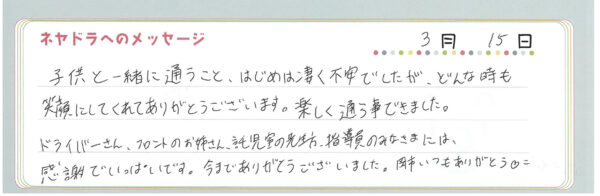 ネヤドラへのメッセージ
3月 15日
子供と一緒に通うこと、はじめは凄く不安でしたが、どんな時も
笑顔にしてくれてありがとうございます。楽しく通う事できました。
ドライバーさん、フロントのお姉さん、託児室の先生方、指導員のみなさまには、
感謝でいっぱいです。今までありがとうございました。 いつもありがとう